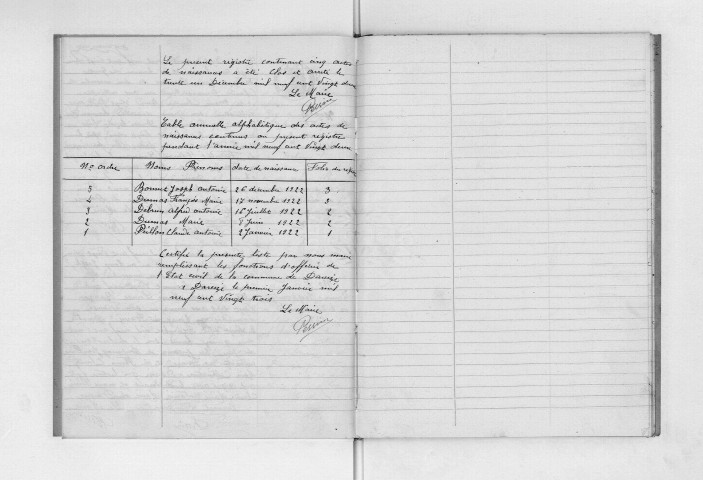 Le présent registre contenant cinq actes
de naissances a été clos et arrêté le
trente un Décembre mil neuf cent vingt deux
Le Maire
Table annuelle alphabétique des actes de
naissances contenus au présent registre
pendant l'année mil neuf cent vingt deux
No ordre Noms Prénoms date de naissance Folio du
5 Bonnet Joseph Antoine 26 décembre 1922 3
4 Dumas François Marie 17 novembre 1922 3
3 Alfred Antoine 16 Juillet 1922 2
2 Dumas Marie 8 Juin 1922 2
1 Claude Antoine 2 Janvier 1922 1
Certifié la présente liste par nous maire
remplissant les fonctions d'officier de
l'Etat civil de la commune de Dareizé
à Dareizé le premier Janvier mil
neuf cent vingt trois
Le Maire